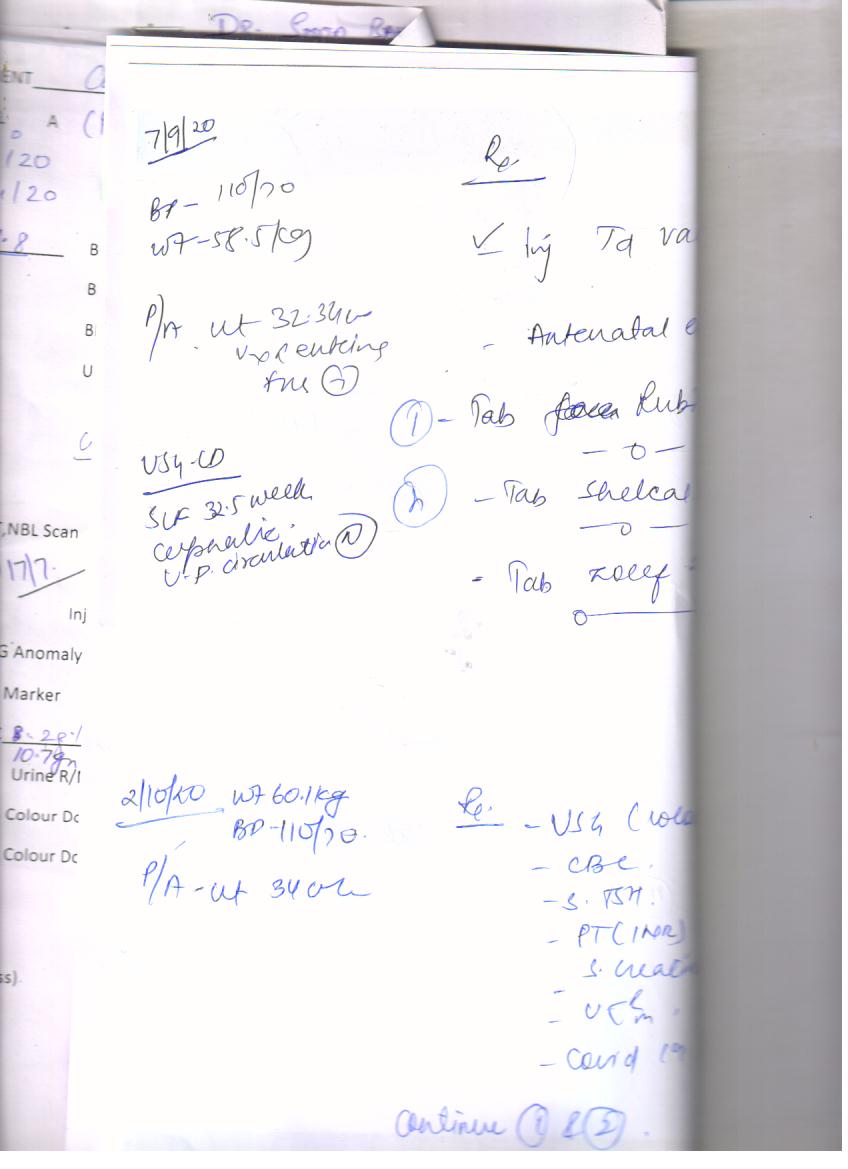 DR.
ENT
A
/20
/20
.8
B
B
B
U
C
,NBL Scan
17/7.
Inj
G Anomaly
Marker
10.7gm
Urine R/
Colour Do
Colour Do
ss)
7/9/20
BP- 110/70
wt-58.5kg
P/A ut 32-34w
FHS +
USG-CD
SLF 32.5 week
cephalic.
U-P. circulation N
Rx
✓ Inj Td va
- Antenatal e
1 - Tab Rub
2 - Tab Shelcal
- Tab
2/10/20 wt 60.1kg
BP-110/70.
P/A - ut 34 wk
Rx. - USG (colo
- CBC.
- S. TSH.
- PT (INR)
S. Creati
-
- Covid 19
Continue 1 & 2.